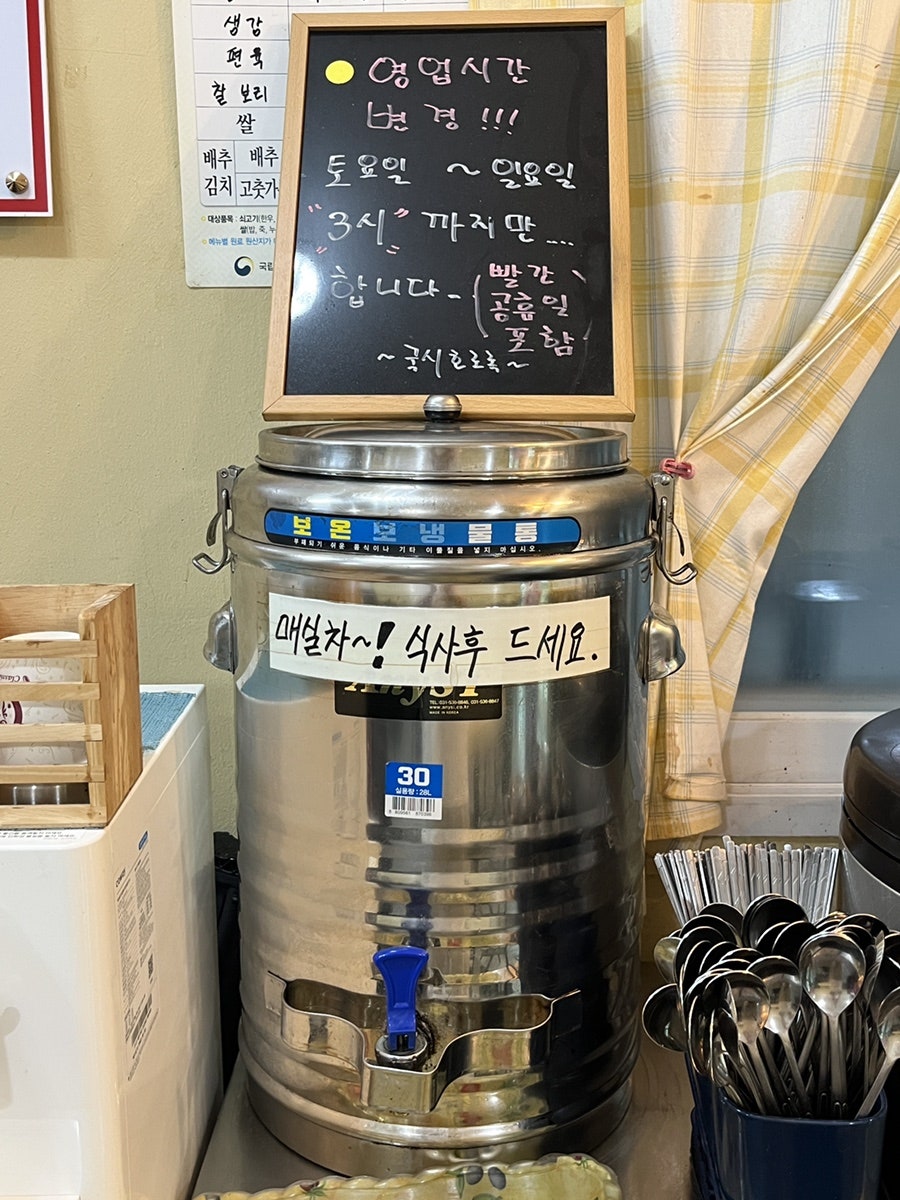 생강
편육
찰보리
쌀
배추 배추
김치 고춧가
대상품목 : 쇠고기(한우,
쌀(밥, 죽, 누
메뉴별 원료 원산지가
국립
영업시간
변경!!!
토요일 ~ 일요일
"3시" 까지만...
합니다- (빨간
공휴일
포함)
~국시호로록~
보온보냉물통
부패되기 쉬운 음식이나 기타 이물질을 넣지 마십시오.
매실차~! 식사후 드세요.
TEL:031-536-8846, 031-536-8847
www.anysi.co.kr
MADE IN KOREA
30
실용량 : 28L